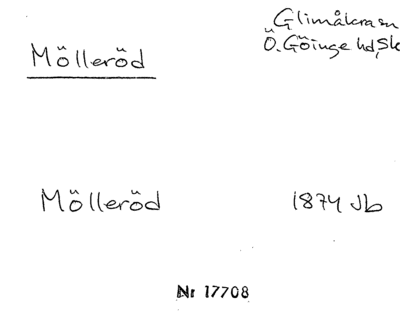 Glimåkra sn
Mölleröd
Ö. Göinge hd, Sk
Mölleröd 1874 Jb
Nr 17708